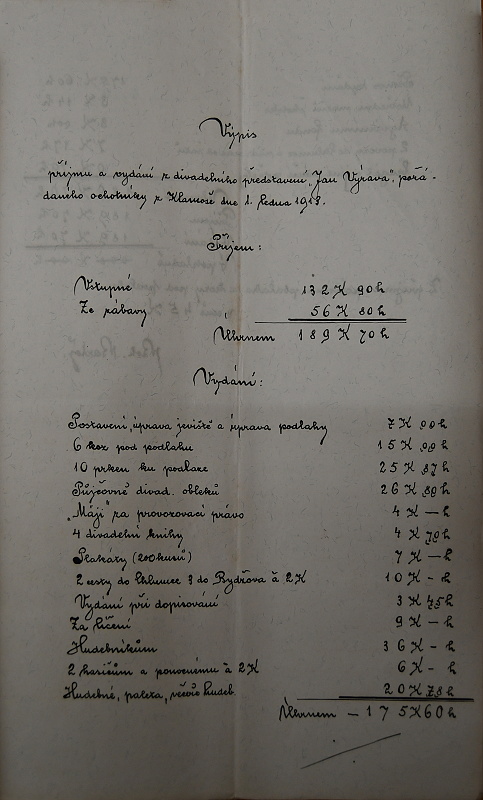 Výpis
příjmu a vydání z divadelního představení „Jan Výrava", pořá-
daného ochotníky z Klamoše dne 1. ledna 1913.
Příjem:
Vstupné 132 K 90 h
Ze zábavy 56 K 80 h
Úhrnem 189 K 70 h
Vydání:
Postavení, úprava jeviště a úprava podlahy 7 K 00 h
6 koz pod podlahu 15 K 00 h
10 prken ku podlaze 25 K 87 h
Půjčovné divad. obleků 26 K 80 h
„Máji" za provozovací právo 4 K — h
4 divadelní knihy 4 K 70 h
Plakáty (200 kusů) 7 K — h
2 cesty do Chlumce 3 do Bydžova à 2 K 10 K - h
Vydání při dopisování 3 K 45 h
Za líčení 9 K — h
Hudebníkům 36 K - h
2 hasičům a ponocnému à 2 K 6 K - h
Hudebné, paleta, hudeb. 20 K 78 h
Úhrnem — 175 K 60 h